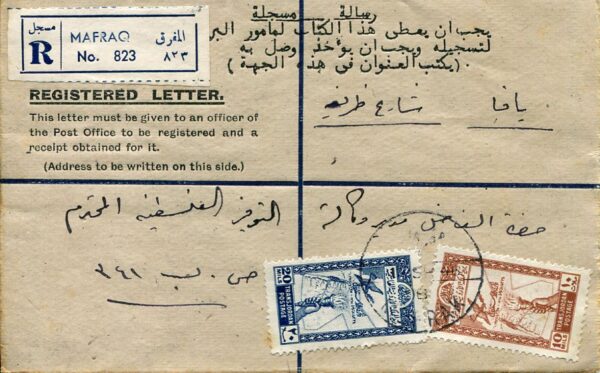 مسجل
R
MAFRAQ المفرق
No. 823 ٨٢٣
رسالة مسجلة
يجب ان يعطى هذا الكتاب لمامور البر
لتسجيله ويجب ان يؤخذ وصل به
(يكتب العنوان فى هذه الجهة)
REGISTERED LETTER.
This letter must be given to an officer of
the Post Office to be registered and a
receipt obtained for it.
(Address to be written on this side.)
يافا شارع
حضرة الفاضل مدير وكالة
التوفير الفلسطينية المحترم
ص. ب ٣٤١
20
TRANSJORDAN
POSTAGE
٢٠
10
TRANSJORDAN
POSTAGE
١٠